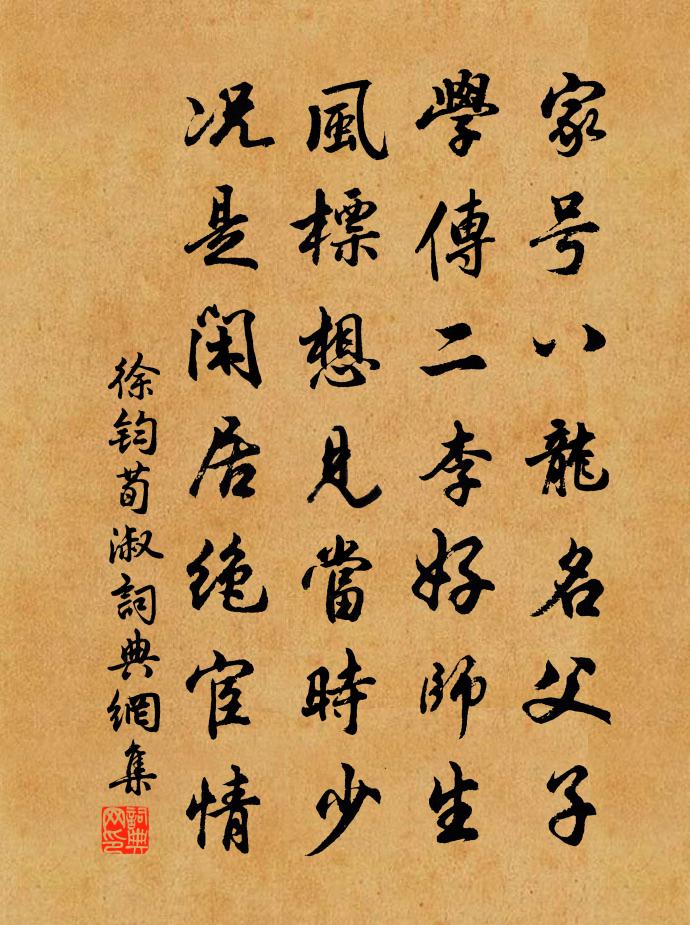 家号八龍名父子
學傳二李好師生
風標想見當時少
況是閑居絶宦情
徐鈞荀淑詞典網集
詞典网印